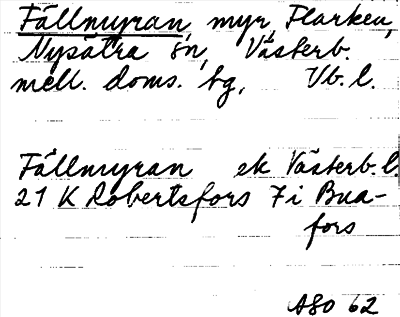 Fällmyran, myr, Flarken,
Nysätra sn, Västerb.
mell. doms. tg, Vb. l.
Fällmyran ek Västerb. l.
21 K Robertsfors 7 i Bua-
fors
ASO 62